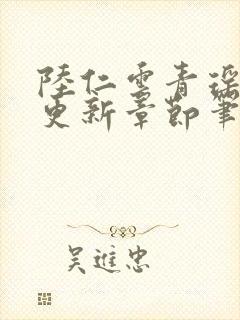 陸仁雲青瑶
更新章節筆
吴進忠